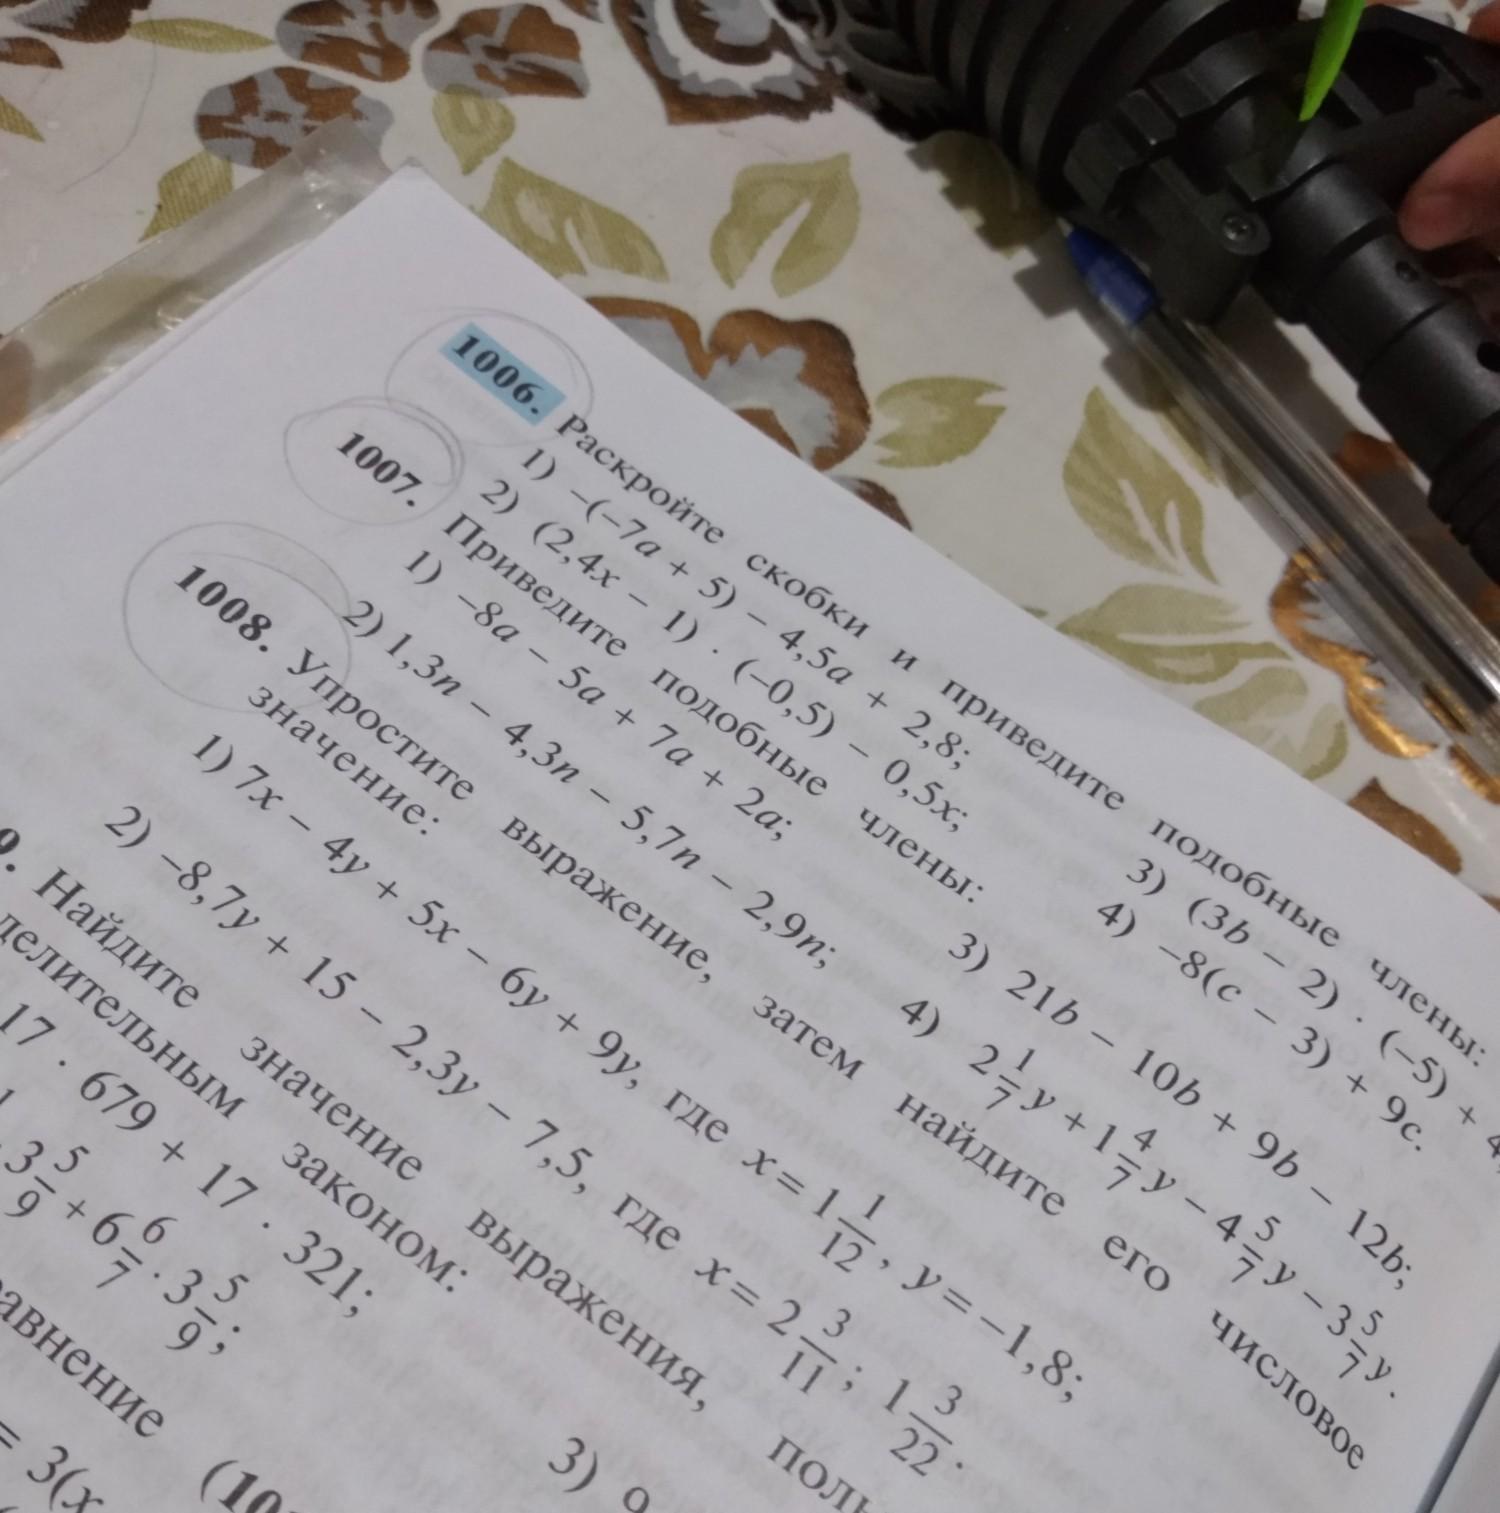 1006. Раскройте скобки и приведите подобные члены:
1) –(–7a + 5) – 4,5a + 2,8; 3) (3b – 2) · (–5) + 4
2) (2,4x – 1) · (–0,5) – 0,5x; 4) –8(c – 3) + 9c.
1007. Приведите подобные члены:
1) –8a – 5a + 7a + 2a; 3) 21b – 10b + 9b – 12b;
2) 1,3n – 4,3n – 5,7n – 2,9n; 4) 2 1/7 y + 1 4/7 y – 4 5/7 y – 3 5/7 y.
1008. Упростите выражение, затем найдите его числовое
значение:
1) 7x – 4y + 5x – 6y + 9y, где x = 1 1/12, y = –1,8;
2) –8,7y + 15 – 2,3y – 7,5, где x = 2 3/11; 1 3/22.
9. Найдите значение выражения,
делительным законом:
17 · 679 + 17 · 321; 3) 9
3 5/9 + 6 6/7 · 3 5/9;
авнение (10
= 3(x